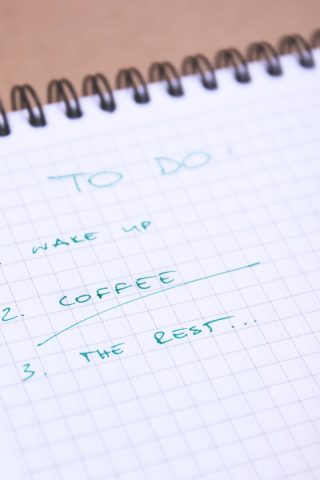 TO DO:
WAKE UP
2. COFFEE
3. THE REST...